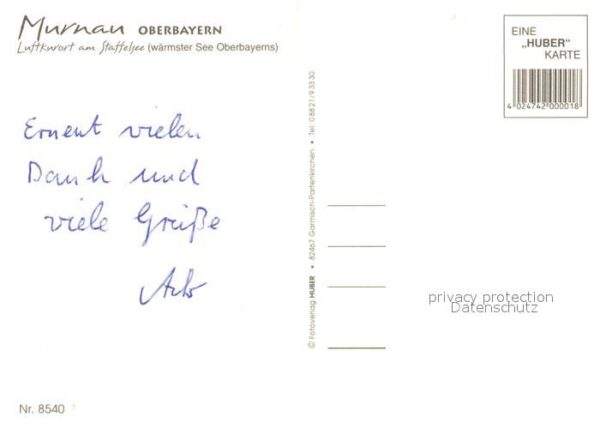 Murnau OBERBAYERN
Luftkurort am Staffelsee (wärmster See Oberbayerns)
EINE
„HUBER"
KARTE
4 024742 000018
Erneut vielen
Dank und
viele Grüße
© Fotoverlag HUBER • 82467 Garmisch-Partenkirchen • Tel. 08821/93330
privacy protection
Datenschutz
Nr. 8540